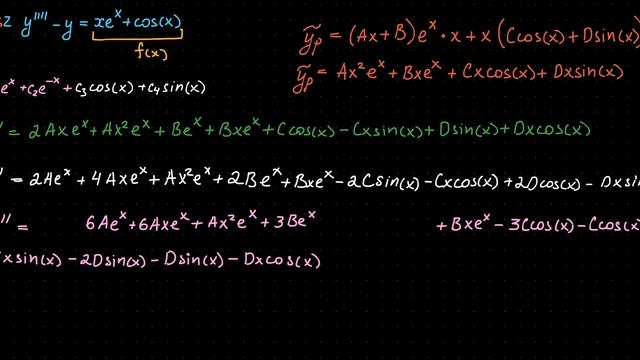 y'''' - y = xe^x + cos(x)
f(x)
ỹp = (Ax+B)e^x · x + x(Ccos(x) + Dsin(x)
ỹp = Ax²e^x + Bxe^x + Cxcos(x) + Dxsin(x)
e^x + c₂e^-x + c₃cos(x) + c₄sin(x)
= 2Axe^x + Ax²e^x + Be^x + Bxe^x + Ccos(x) - Cxsin(x) + Dsin(x) + Dxcos(x)
= 2Ae^x + 4Axe^x + Ax²e^x + 2Be^x + Bxe^x - 2Csin(x) - Cxcos(x) + 2Dcos(x) - Dxsin
= 6Ae^x + 6Axe^x + Ax²e^x + 3Be^x + Bxe^x - 3Ccos(x) - Ccos(x)
xsin(x) - 2Dsin(x) - Dsin(x) - Dxcos(x)